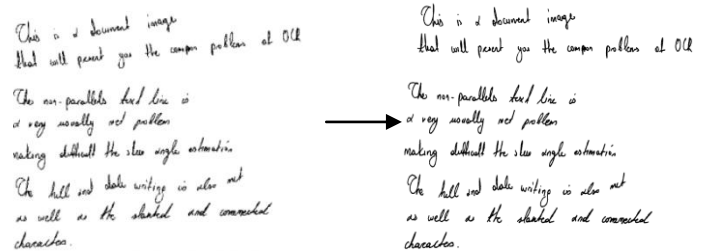 This is a document image
that will present you the common problem of OCR
The non-parallels text line is
a very usually met problem
making difficult the skew angle estimation
The hill and dale writing is also met
as well as the slanted and connected
characters.
This is a document image
that will present you the common problem of OCR
The non-parallels text line is
a very usually met problem
making difficult the skew angle estimation
The hill and dale writing is also met
as well as the slanted and connected
characters.